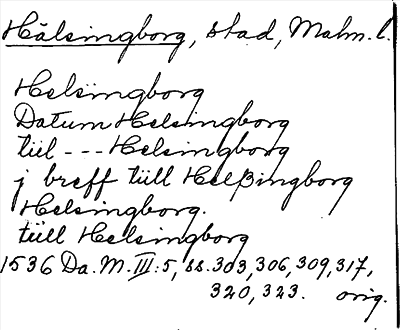 Hälsingborg, stad, Malm. l.
Helsingborg
Datum Helsingborg
tiil --- Helsingborg
j breff tüll Helßingborg
Helsingborg.
tüll Helsingborg
1536 Da. M. III:5, ss. 303, 306, 309, 317,
320, 323. orig.